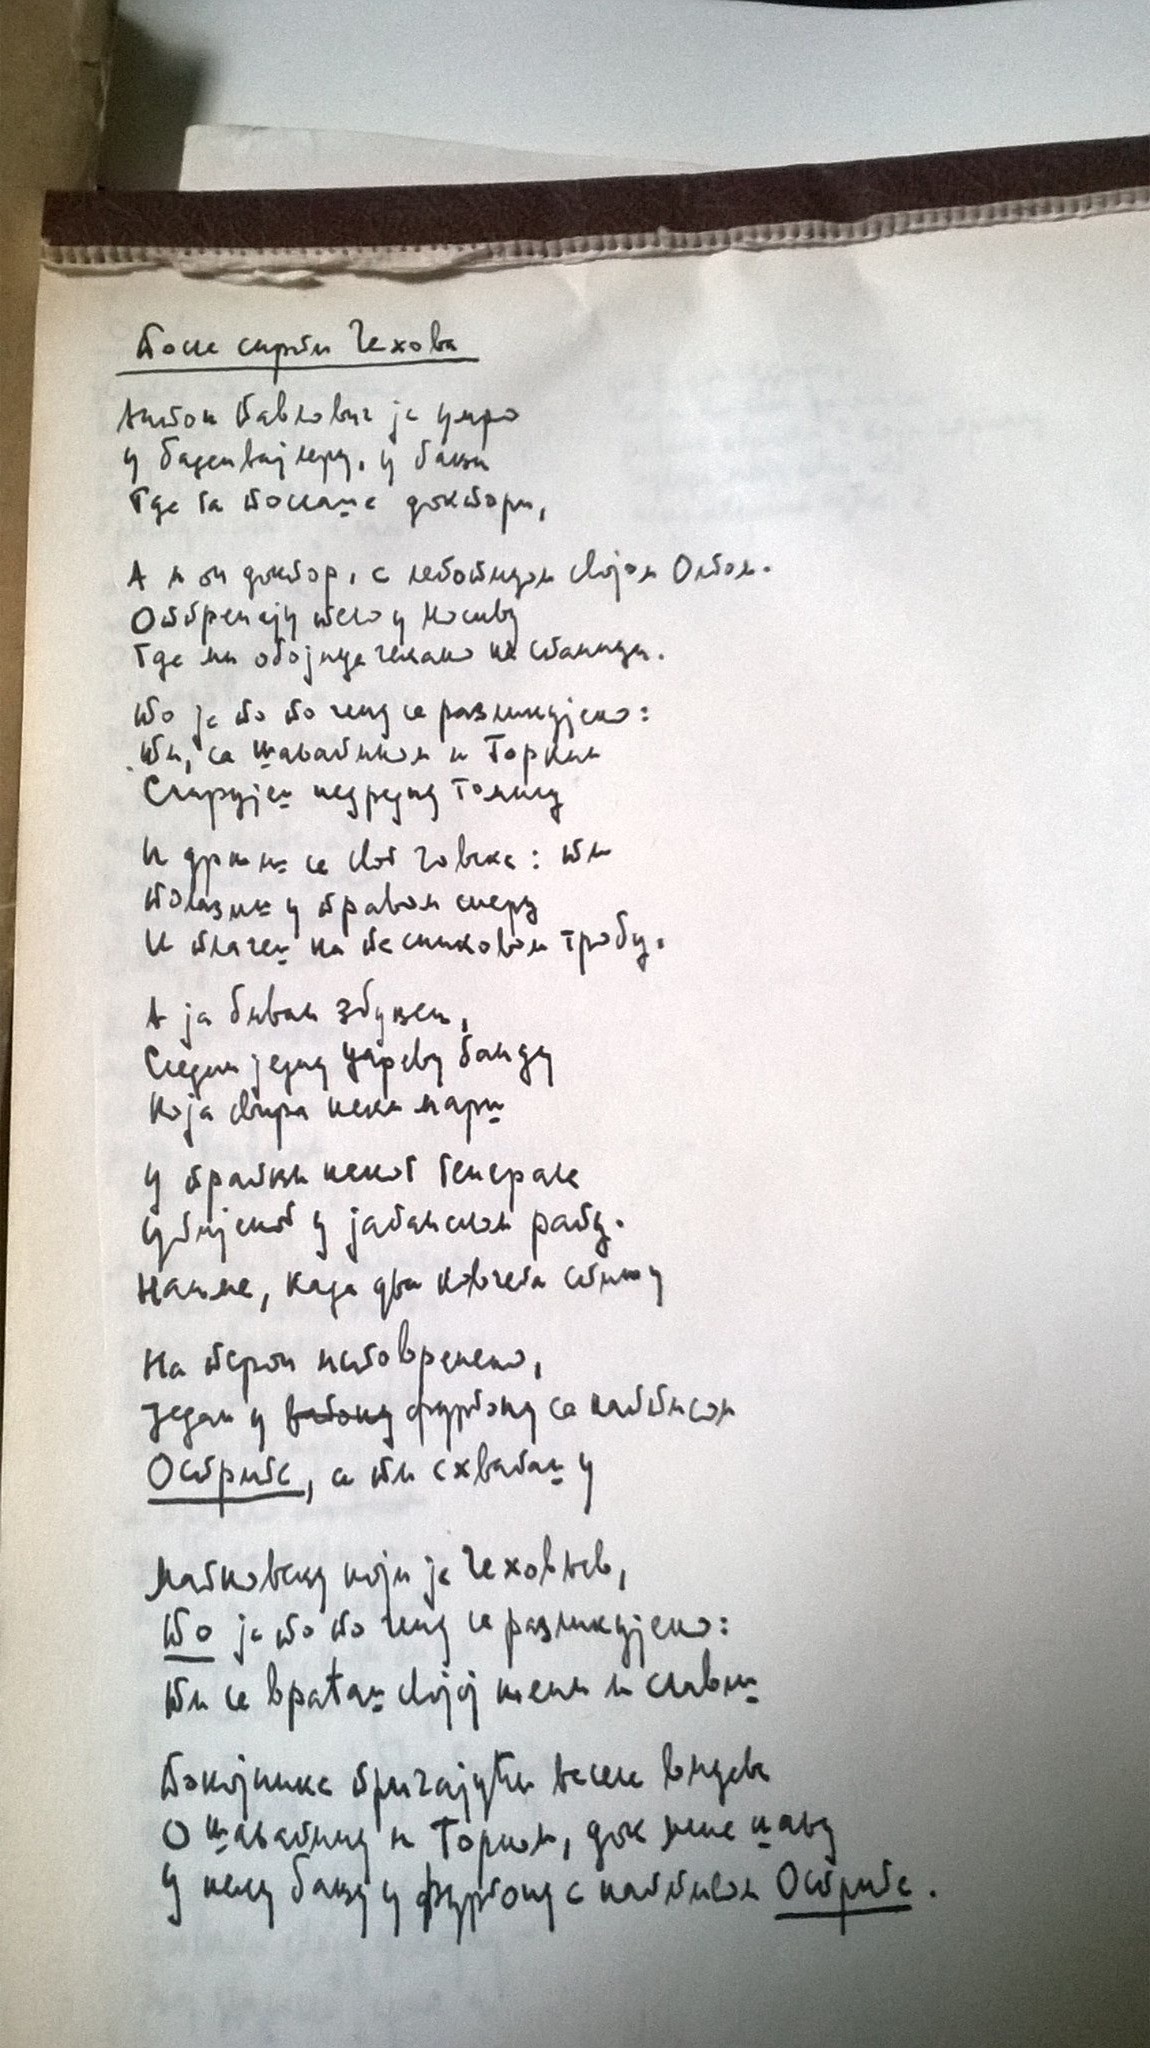 После смрти Чехова
Антон Павлович је умро
у Баденвајлеру, у бањи
Где га послаше доктори,
А и он доктор, с лепотицом својом Олгом.
Отпремају тело у Москву
Где ми обојица чекамо на станици.
По је по по чему се разликујемо:
Ти, са Шаљапином и Горким
Смирујеш недредну гомилу
И држиш се свог човека: ти
Полазиш у правом смеру
И плачеш на песниковом гробу.
А ја бивам збуњен,
Следим једну цареву банду
Која свира неки марш
У пратњи неког генерала
Убијеног у јапанском рату.
Наиме, када два ковчега стижу
На перон истовремено,
Један у вагону фургону са натписом
Остриге, а ти схваташ у
који је Чеховљев,
То је то по чему се разликујемо:
Ти се враћаш својој жени и славиш
Покојника причајући веселе
О Шаљапину и Горком, док мене
У неку бању у фургону с натписом Остриге.